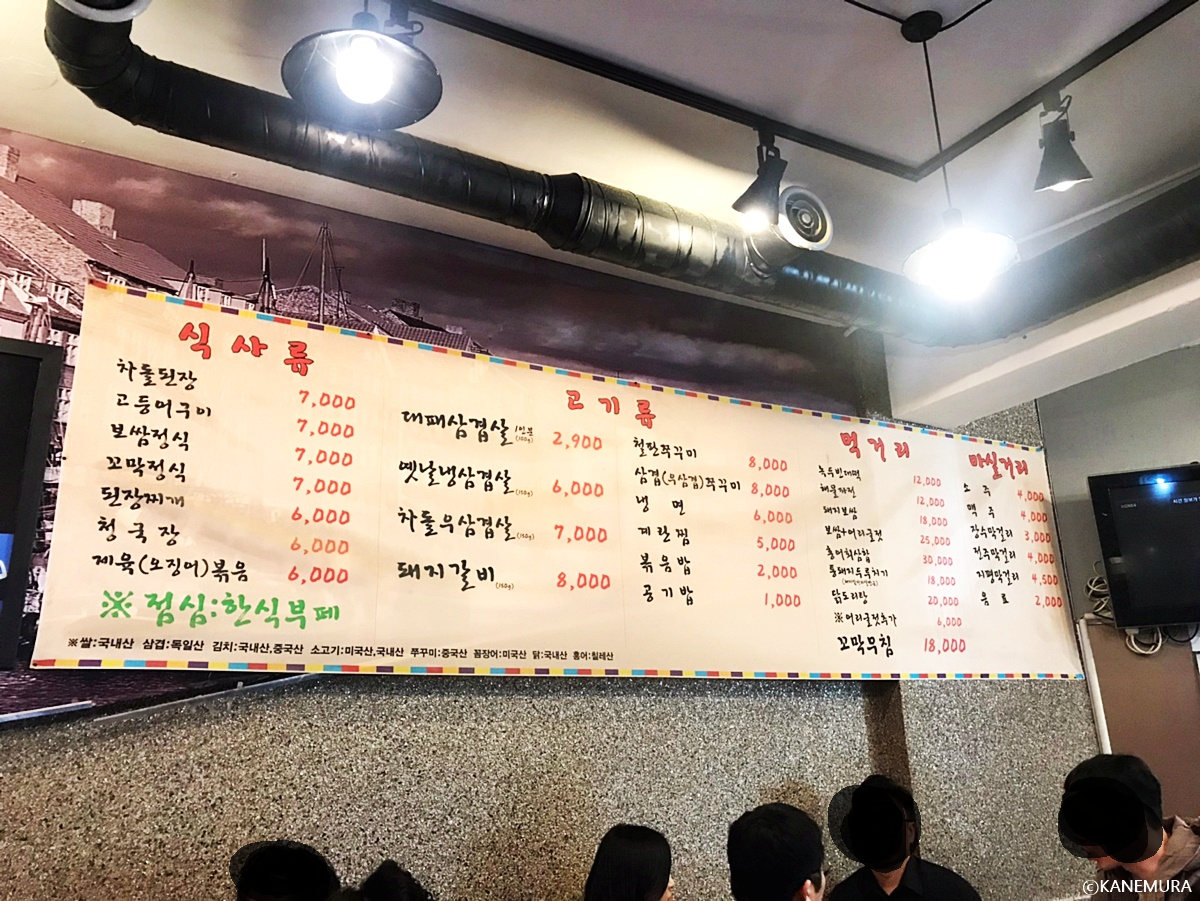 식사류
차돌된장 7,000
고등어구이 7,000
보쌈정식 7,000
꼬막정식 7,000
된장찌개 6,000
청국장 6,000
제육(오징어)볶음 6,000
※ 점심:한식부페
고기류
대패삼겹살 1인분(150g) 2,900
옛날냉삼겹살(150g) 6,000
차돌우삼겹살(150g) 7,000
돼지갈비(150g) 8,000
철판쭈꾸미 8,000
삼겹(우삼겹)쭈꾸미 8,000
냉면 6,000
계란찜 5,000
볶음밥 2,000
공기밥 1,000
먹거리
녹두빈대떡 12,000
해물파전 12,000
돼지보쌈 18,000
보쌈+어리굴젓 25,000
홍어회삼합 30,000
통돼지두루치기 18,000
닭도리탕 20,000
※어리굴젓추가 6,000
꼬막무침 18,000
마실거리
소주 4,000
맥주 4,000
장수막걸리 3,000
전주막걸리 4,000
지평막걸리 4,500
음료 2,000
※쌀:국내산 삼겹:독일산 김치:국내산,중국산 소고기:미국산,국내산 쭈꾸미:중국산 꼼장어:미국산 닭:국내산 홍어:칠레산
©KANEMURA